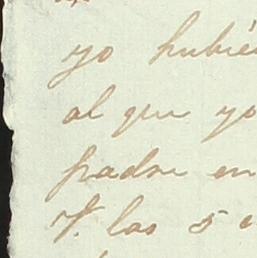 yo hubié
al que yo
padre en
V. las 5